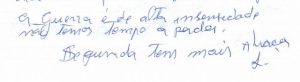 a Guerra é de alta intensidade
não temos tempo a perder.
Segunda tem mais